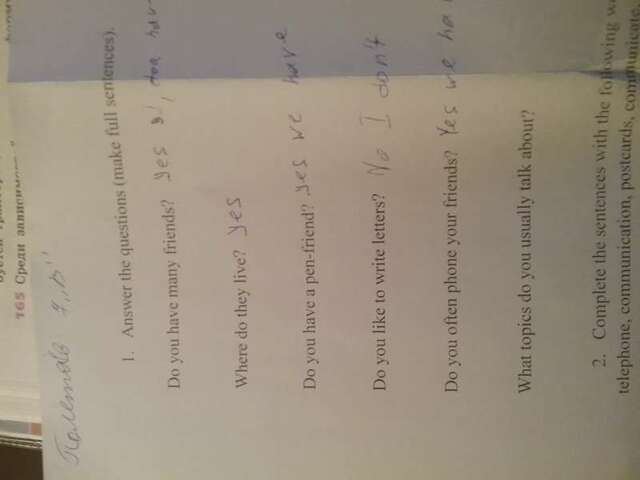 165 Среди зависимост
7 „В"
1. Answer the questions (make full sentences).
Do you have many friends? yes
Where do they live? yes
Do you have a pen-friend? yes we have
Do you like to write letters? No I don't
Do you often phone your friends? Yes we ha
What topics do you usually talk about?
2. Complete the sentences with the following
telephone, communication, postcards, communicate,